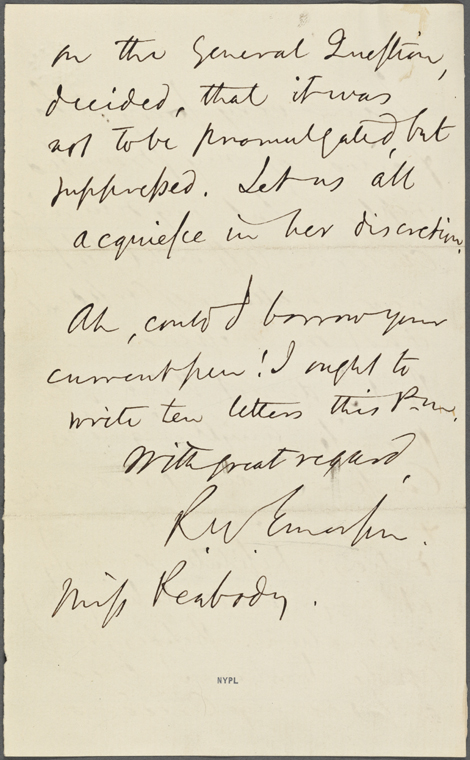 on the General Question,
decided, that it was
not to be promulgated, but
suppressed. Let us all
acquiesce in her discretion.
Ah, could I borrow your
current pen! I ought to
write ten letters this P.m.
With great regard,
R. W. Emerson.
Miss Peabody.
NYPL